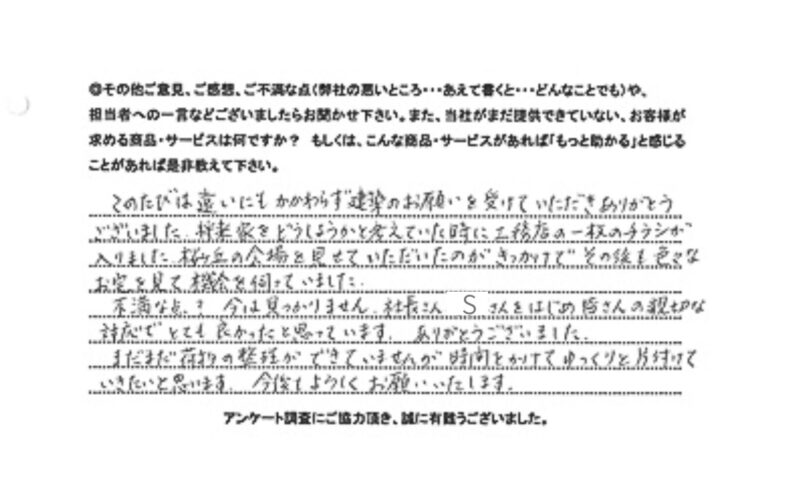 ◎その他ご意見、ご感想、ご不満な点(弊社の悪いところ・・・あえて書くと・・・どんなことでも)や、
担当者への一言などございましたらお聞かせ下さい。また、当社がまだ提供できていない、お客様が
求める商品・サービスは何ですか？ もしくは、こんな商品・サービスがあれば「もっと助かる」と感じる
ことがあれば是非教えて下さい。
このたびは遠いにもかかわらず建築のお願いを受けていただきありがとう
ございました。将来家をどうしようかと考えていた時に工務店の一枚のチラシが
入りました。桜ヶ丘の会場を見せていただいたのがきっかけで その後も色々な
お宅を見て機会を伺っていました。
不満な点、？ 今は見つかりません。社長さん Sさんをはじめ皆さんの親切な
対応でとても良かったと思っています。ありがとうございました。
まだまだ荷物の整理ができていませんが時間をかけてゆっくりと片付けて
いきたいと思います。今後もよろしくお願いいたします。
アンケート調査にご協力頂き、誠に有難うございました。